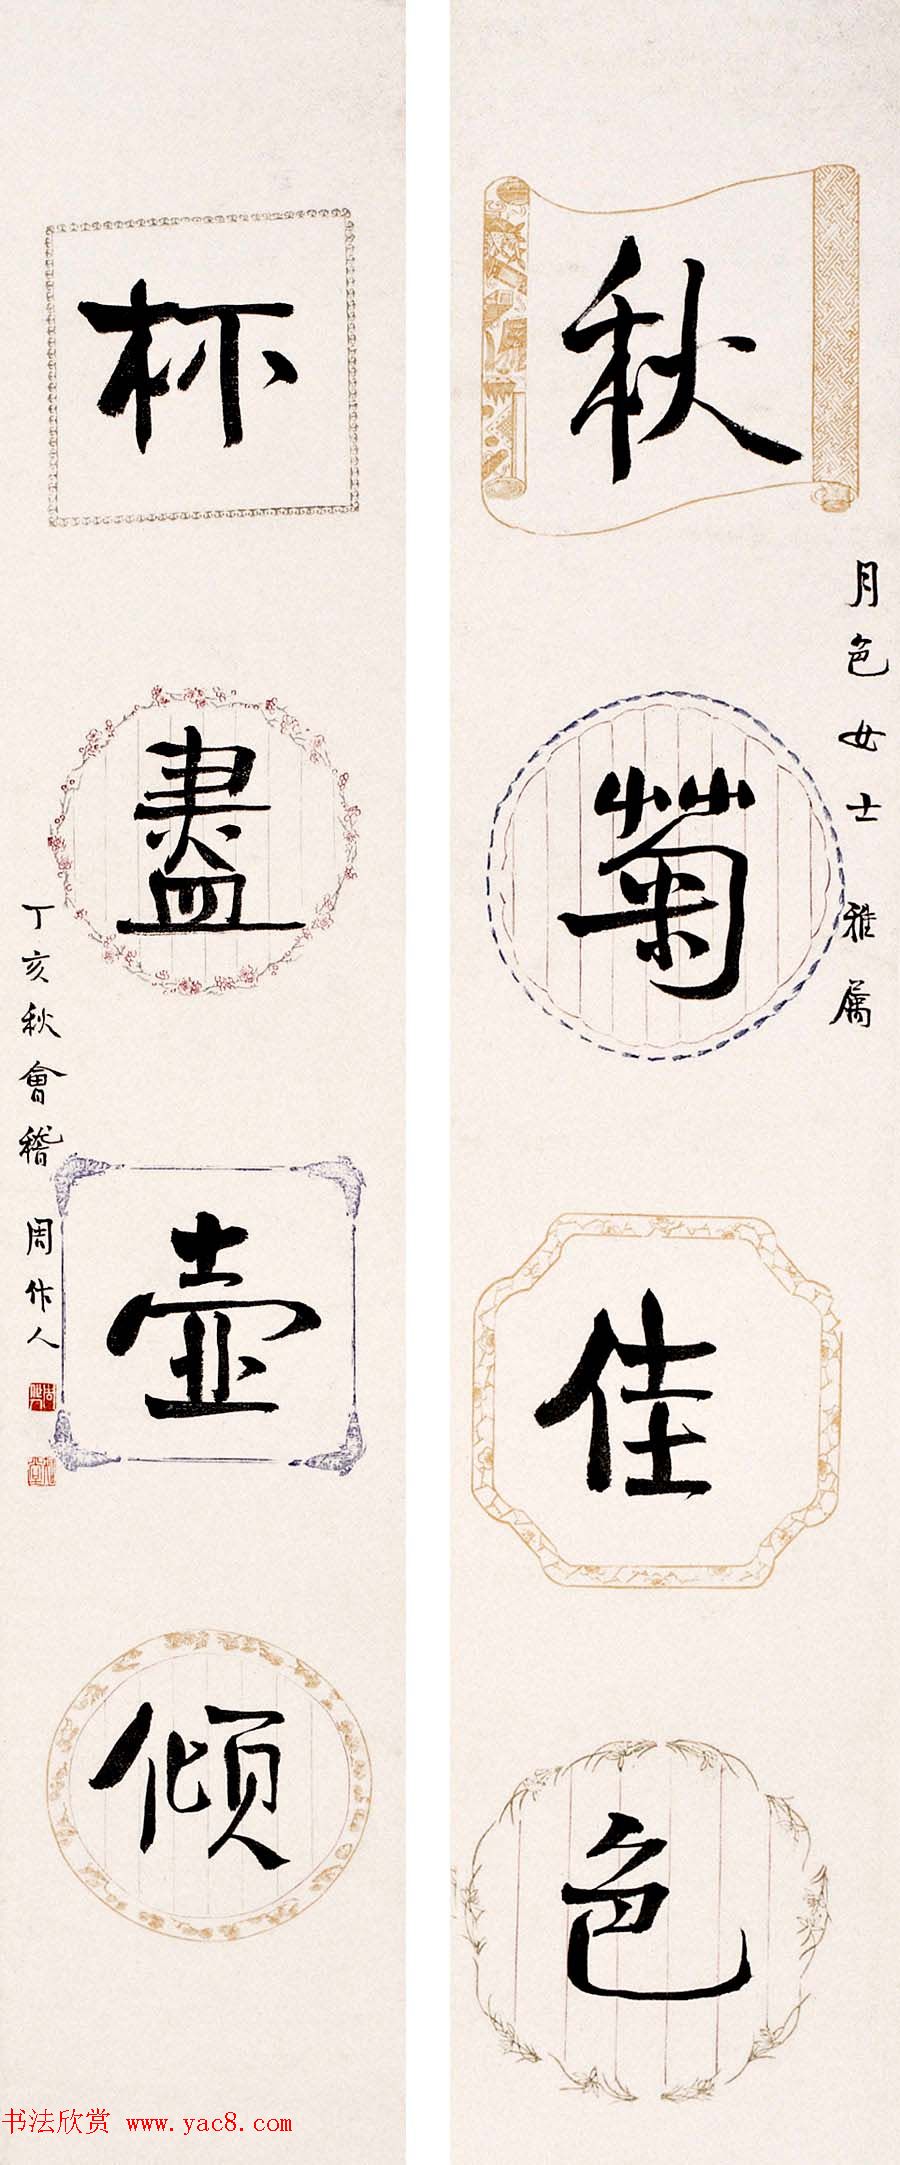 秋菊佳色
月色女士雅属
杯盡壺傾
丁亥秋會稽周作人
书法欣赏 www.yac8.com